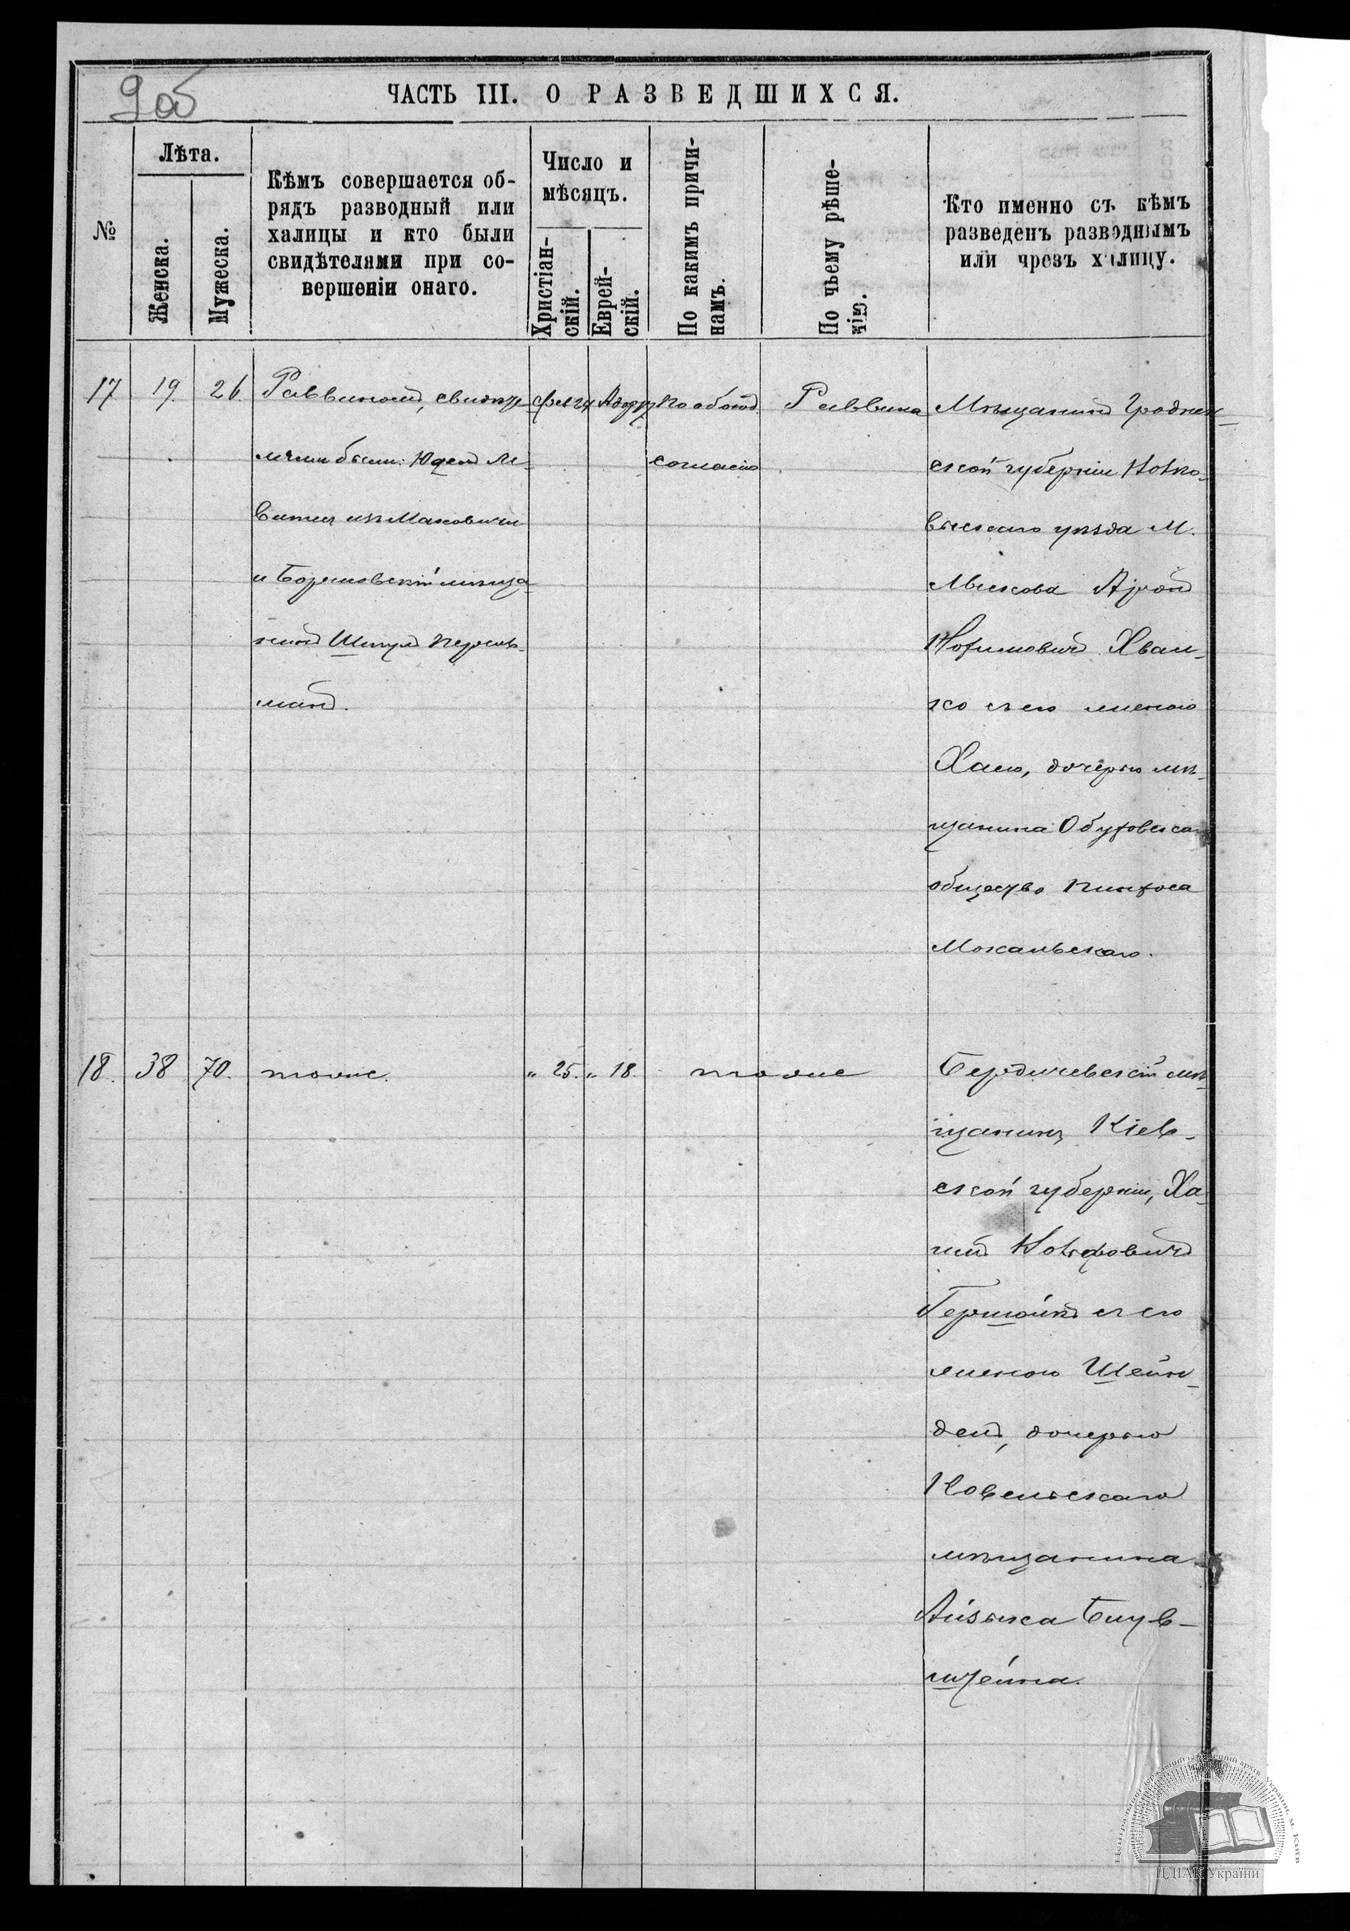 9об
ЧАСТЬ III. О РАЗВЕДШИХСЯ.
№
Лѣта.
Женска.
Мужеска.
Кѣмъ совершается об-
рядъ разводный или
халицы и кто были
свидѣтелями при со-
вершеніи онаго.
Число и
мѣсяцъ.
Христіан-
скій.
Еврей-
скій.
По какимъ причи-
намъ.
По чьему рѣше-
нію.
Кто именно съ кѣмъ
разведенъ разводнымъ
или чрезъ халицу.
17
19.
26.
Раввиномъ, свидѣ-
телями были: Юдель Ле-
витъ изъ
и мѣща-
нинъ Шмулъ Перель-
манъ.
по обоюд.
согласію
Раввина
Мѣщанинъ Гроднен-
ской губерніи Волко-
выскаго уѣзда М.
Лыскова Аронъ
Хван-
ко съ его женою
Хаею, дочерью мѣ-
щанина Обуховскаго
общества Пинхоса
Мокальскаго.
18.
38
70.
тоже.
" 25.
" 18.
тоже
Бердичевскій мѣ-
щанинъ, Кіев-
ской губерніи, Ха-
имъ
съ его
женою Шейн-
дель, дочерью
Ковельскаго
мѣщанина
Айзыка
штейна.
ЦДІАК України